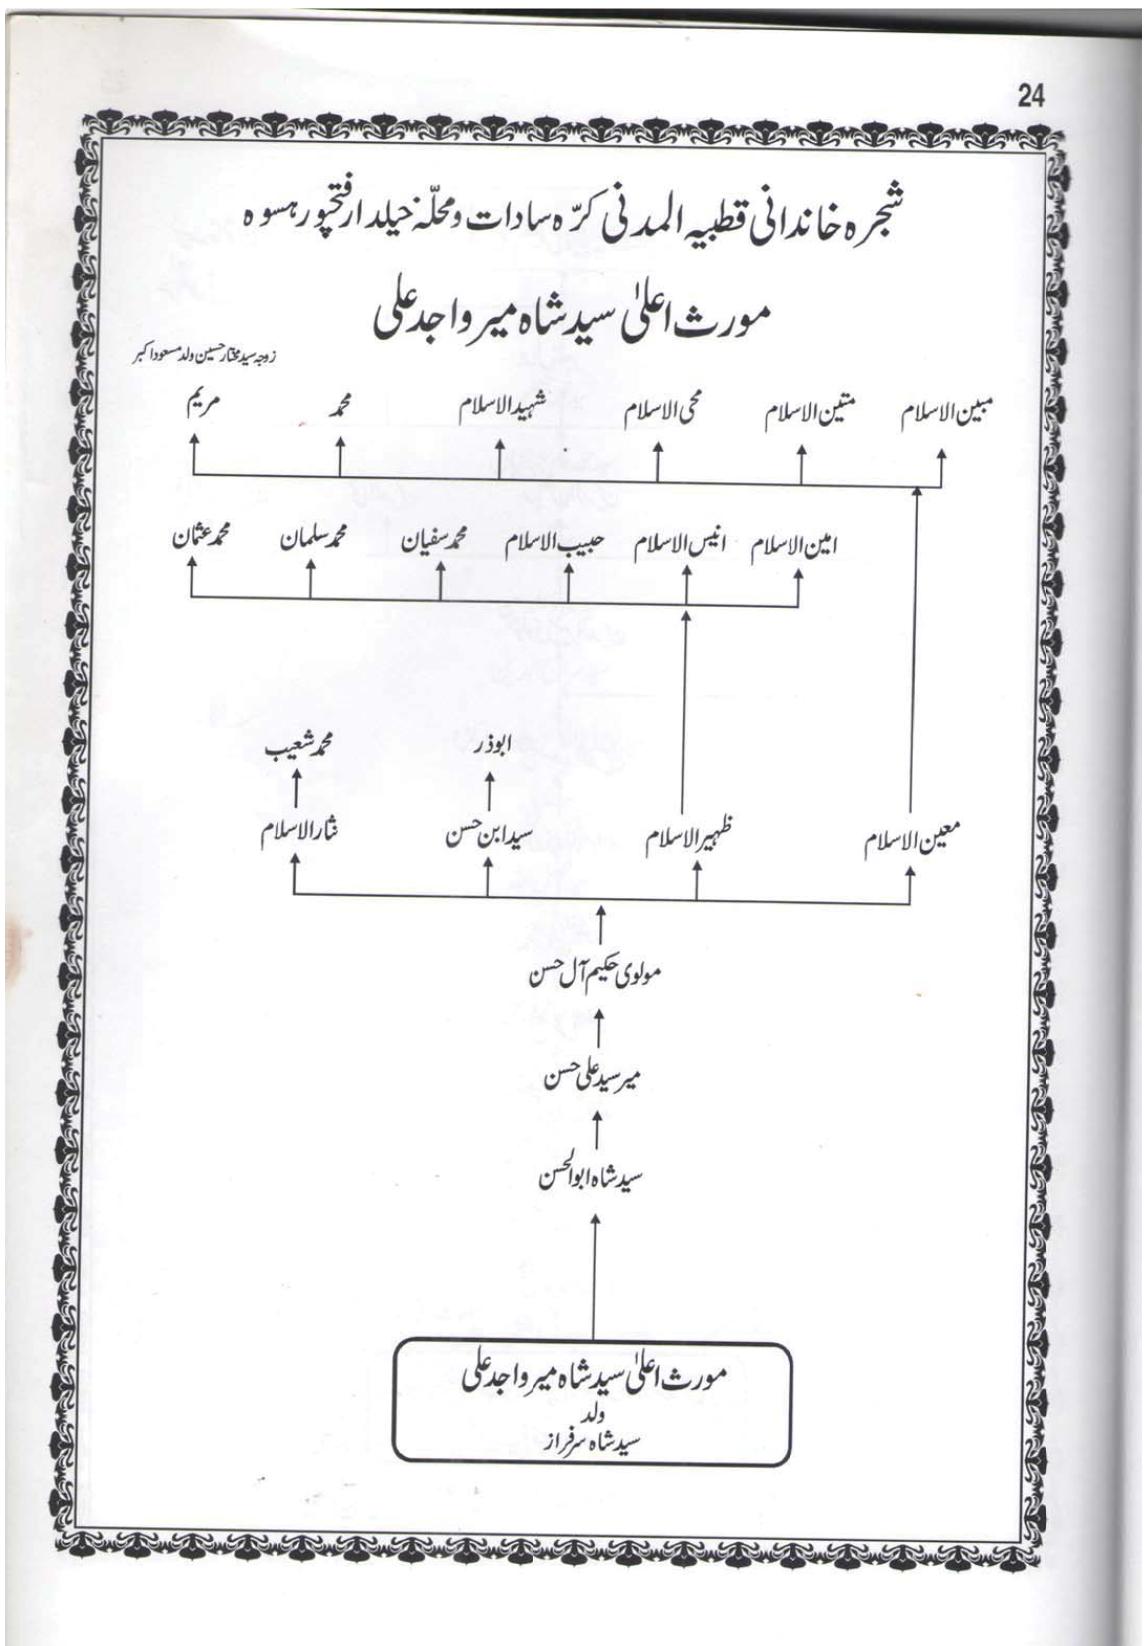 24
شجرہ خاندانی قطبیہ المدنی کرّہ سادات و محلّہ خیلدار فتحپور ہسوہ
مورث اعلیٰ سید شاہ میر واجد علی
زوجہ سید مختار حسین ولد مسعود اکبر
مبین الاسلام متین الاسلام محی الاسلام شہید الاسلام محمد مریم
امین الاسلام انیس الاسلام حبیب الاسلام محمد سفیان محمد سلمان محمد عثمان
ابوذر محمد شعیب
معین الاسلام ظہیر الاسلام سید ابن حسن نثار الاسلام
مولوی حکیم آل حسن
میر سید علی حسن
سید شاہ ابوالحسن
مورث اعلیٰ سید شاہ میر واجد علی
ولد
سید شاہ سرفراز